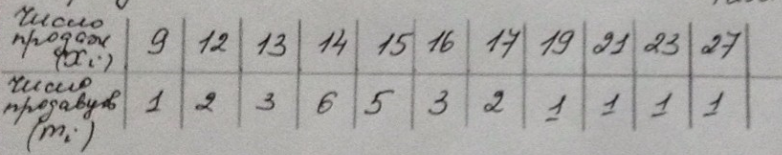 Число продаж (xᵢ) 9 12 13 14 15 16 17 19 21 23 27
Число продавцов (mᵢ) 1 2 3 6 5 3 2 1 1 1 1